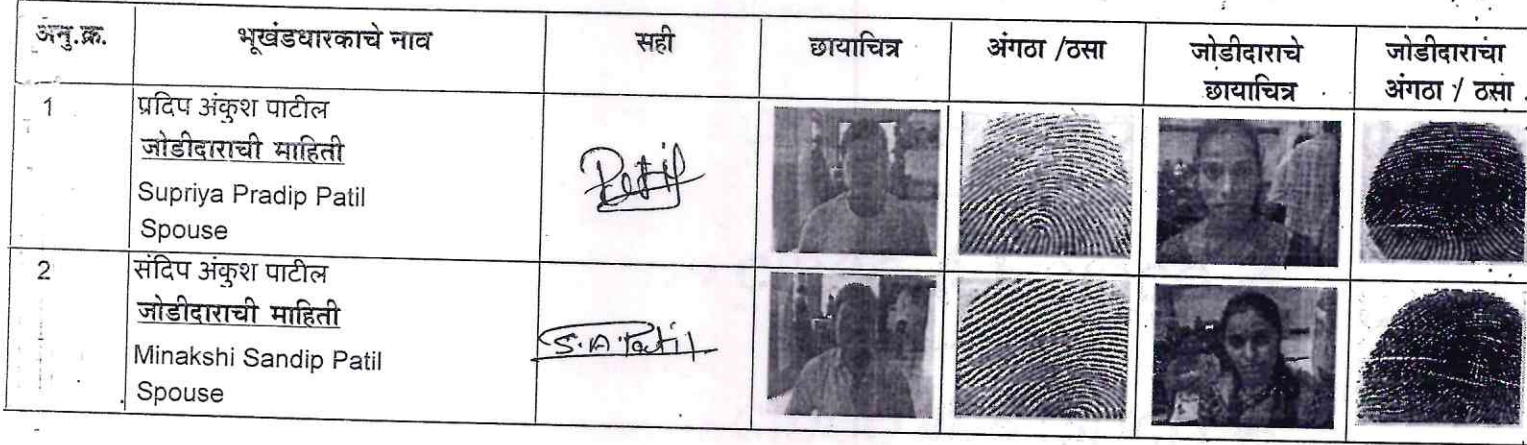 अनु.क्र. भूखंडधारकाचे नाव सही छायाचित्र अंगठा /ठसा जोडीदाराचे छायाचित्र जोडीदाराचा अंगठा / ठसा
1 प्रदिप अंकुश पाटील
जोडीदाराची माहिती
Supriya Pradip Patil
Spouse
Patil
2 संदिप अंकुश पाटील
जोडीदाराची माहिती
Minakshi Sandip Patil
Spouse
S.A.Patil